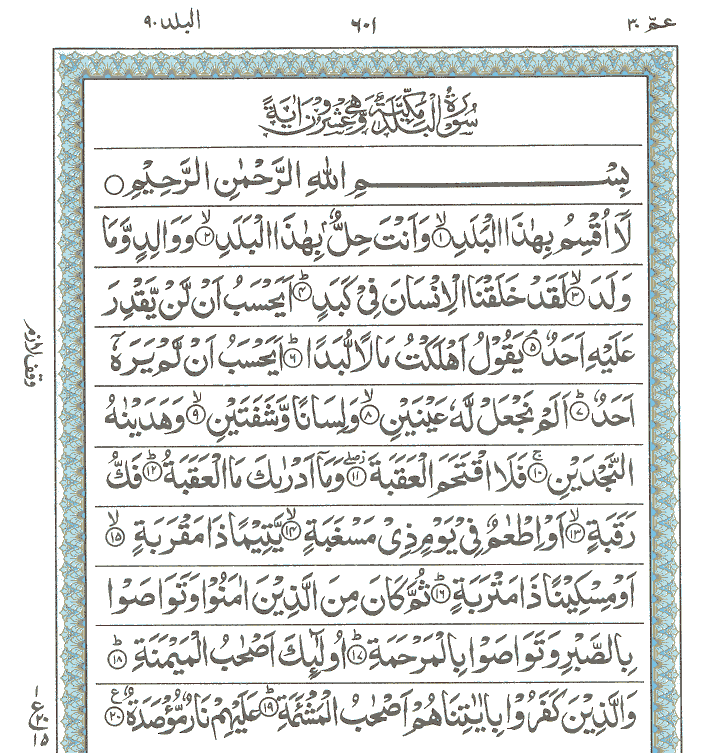 عمّ ٣٠
٦٠١
البلد ٩٠
سُوْرَةُ الْبَلَدِ مَكِّيَّةٌ وَّهِيَ عِشْرُوْنَ اٰيَةً
بِسْمِ اللهِ الرَّحْمٰنِ الرَّحِيْمِ
لَآ اُقْسِمُ بِهٰذَا الْبَلَدِ ۙ﴿١﴾ وَاَنْتَ حِلٌّۢ بِهٰذَا الْبَلَدِ ۙ﴿٢﴾ وَوَالِدٍ وَّمَا
وَلَدَ ۙ﴿٣﴾ لَقَدْ خَلَقْنَا الْاِنْسَانَ فِيْ كَبَدٍ ؕ﴿٤﴾ اَيَحْسَبُ اَنْ لَّنْ يَّقْدِرَ
عَلَيْهِ اَحَدٌ ۘ﴿٥﴾ يَقُوْلُ اَهْلَكْتُ مَالًا لُّبَدًا ؕ﴿٦﴾ اَيَحْسَبُ اَنْ لَّمْ يَرَهٗٓ
اَحَدٌ ؕ﴿٧﴾ اَلَمْ نَجْعَلْ لَّهٗ عَيْنَيْنِ ۙ﴿٨﴾ وَلِسَانًا وَّشَفَتَيْنِ ۙ﴿٩﴾ وَهَدَيْنٰهُ
النَّجْدَيْنِ ۚ﴿١٠﴾ فَلَا اقْتَحَمَ الْعَقَبَةَ ۖ﴿١١﴾ وَمَآ اَدْرٰىكَ مَا الْعَقَبَةُ ؕ﴿١٢﴾ فَكُّ
رَقَبَةٍ ۙ﴿١٣﴾ اَوْ اِطْعٰمٌ فِيْ يَوْمٍ ذِيْ مَسْغَبَةٍ ۙ﴿١٤﴾ يَّتِيْمًا ذَا مَقْرَبَةٍ ۙ﴿١٥﴾
اَوْ مِسْكِيْنًا ذَا مَتْرَبَةٍ ؕ﴿١٦﴾ ثُمَّ كَانَ مِنَ الَّذِيْنَ اٰمَنُوْا وَتَوَاصَوْا
بِالصَّبْرِ وَتَوَاصَوْا بِالْمَرْحَمَةِ ؕ﴿١٧﴾ اُولٰٓئِكَ اَصْحٰبُ الْمَيْمَنَةِ ؕ﴿١٨﴾
وَالَّذِيْنَ كَفَرُوْا بِاٰيٰتِنَا هُمْ اَصْحٰبُ الْمَشْـَٔمَةِ ؕ﴿١٩﴾ عَلَيْهِمْ نَارٌ مُّؤْصَدَةٌ ۠﴿٢٠﴾
وقف لازم
١
ع
٢٠
١٥